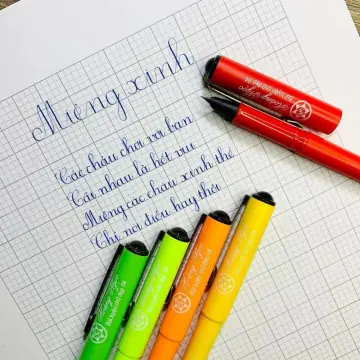 Miệng xinh
Các cháu chơi với bạn
Cãi nhau là hết vui
Miệng các cháu xinh thế
Chỉ nói điều hay thôi